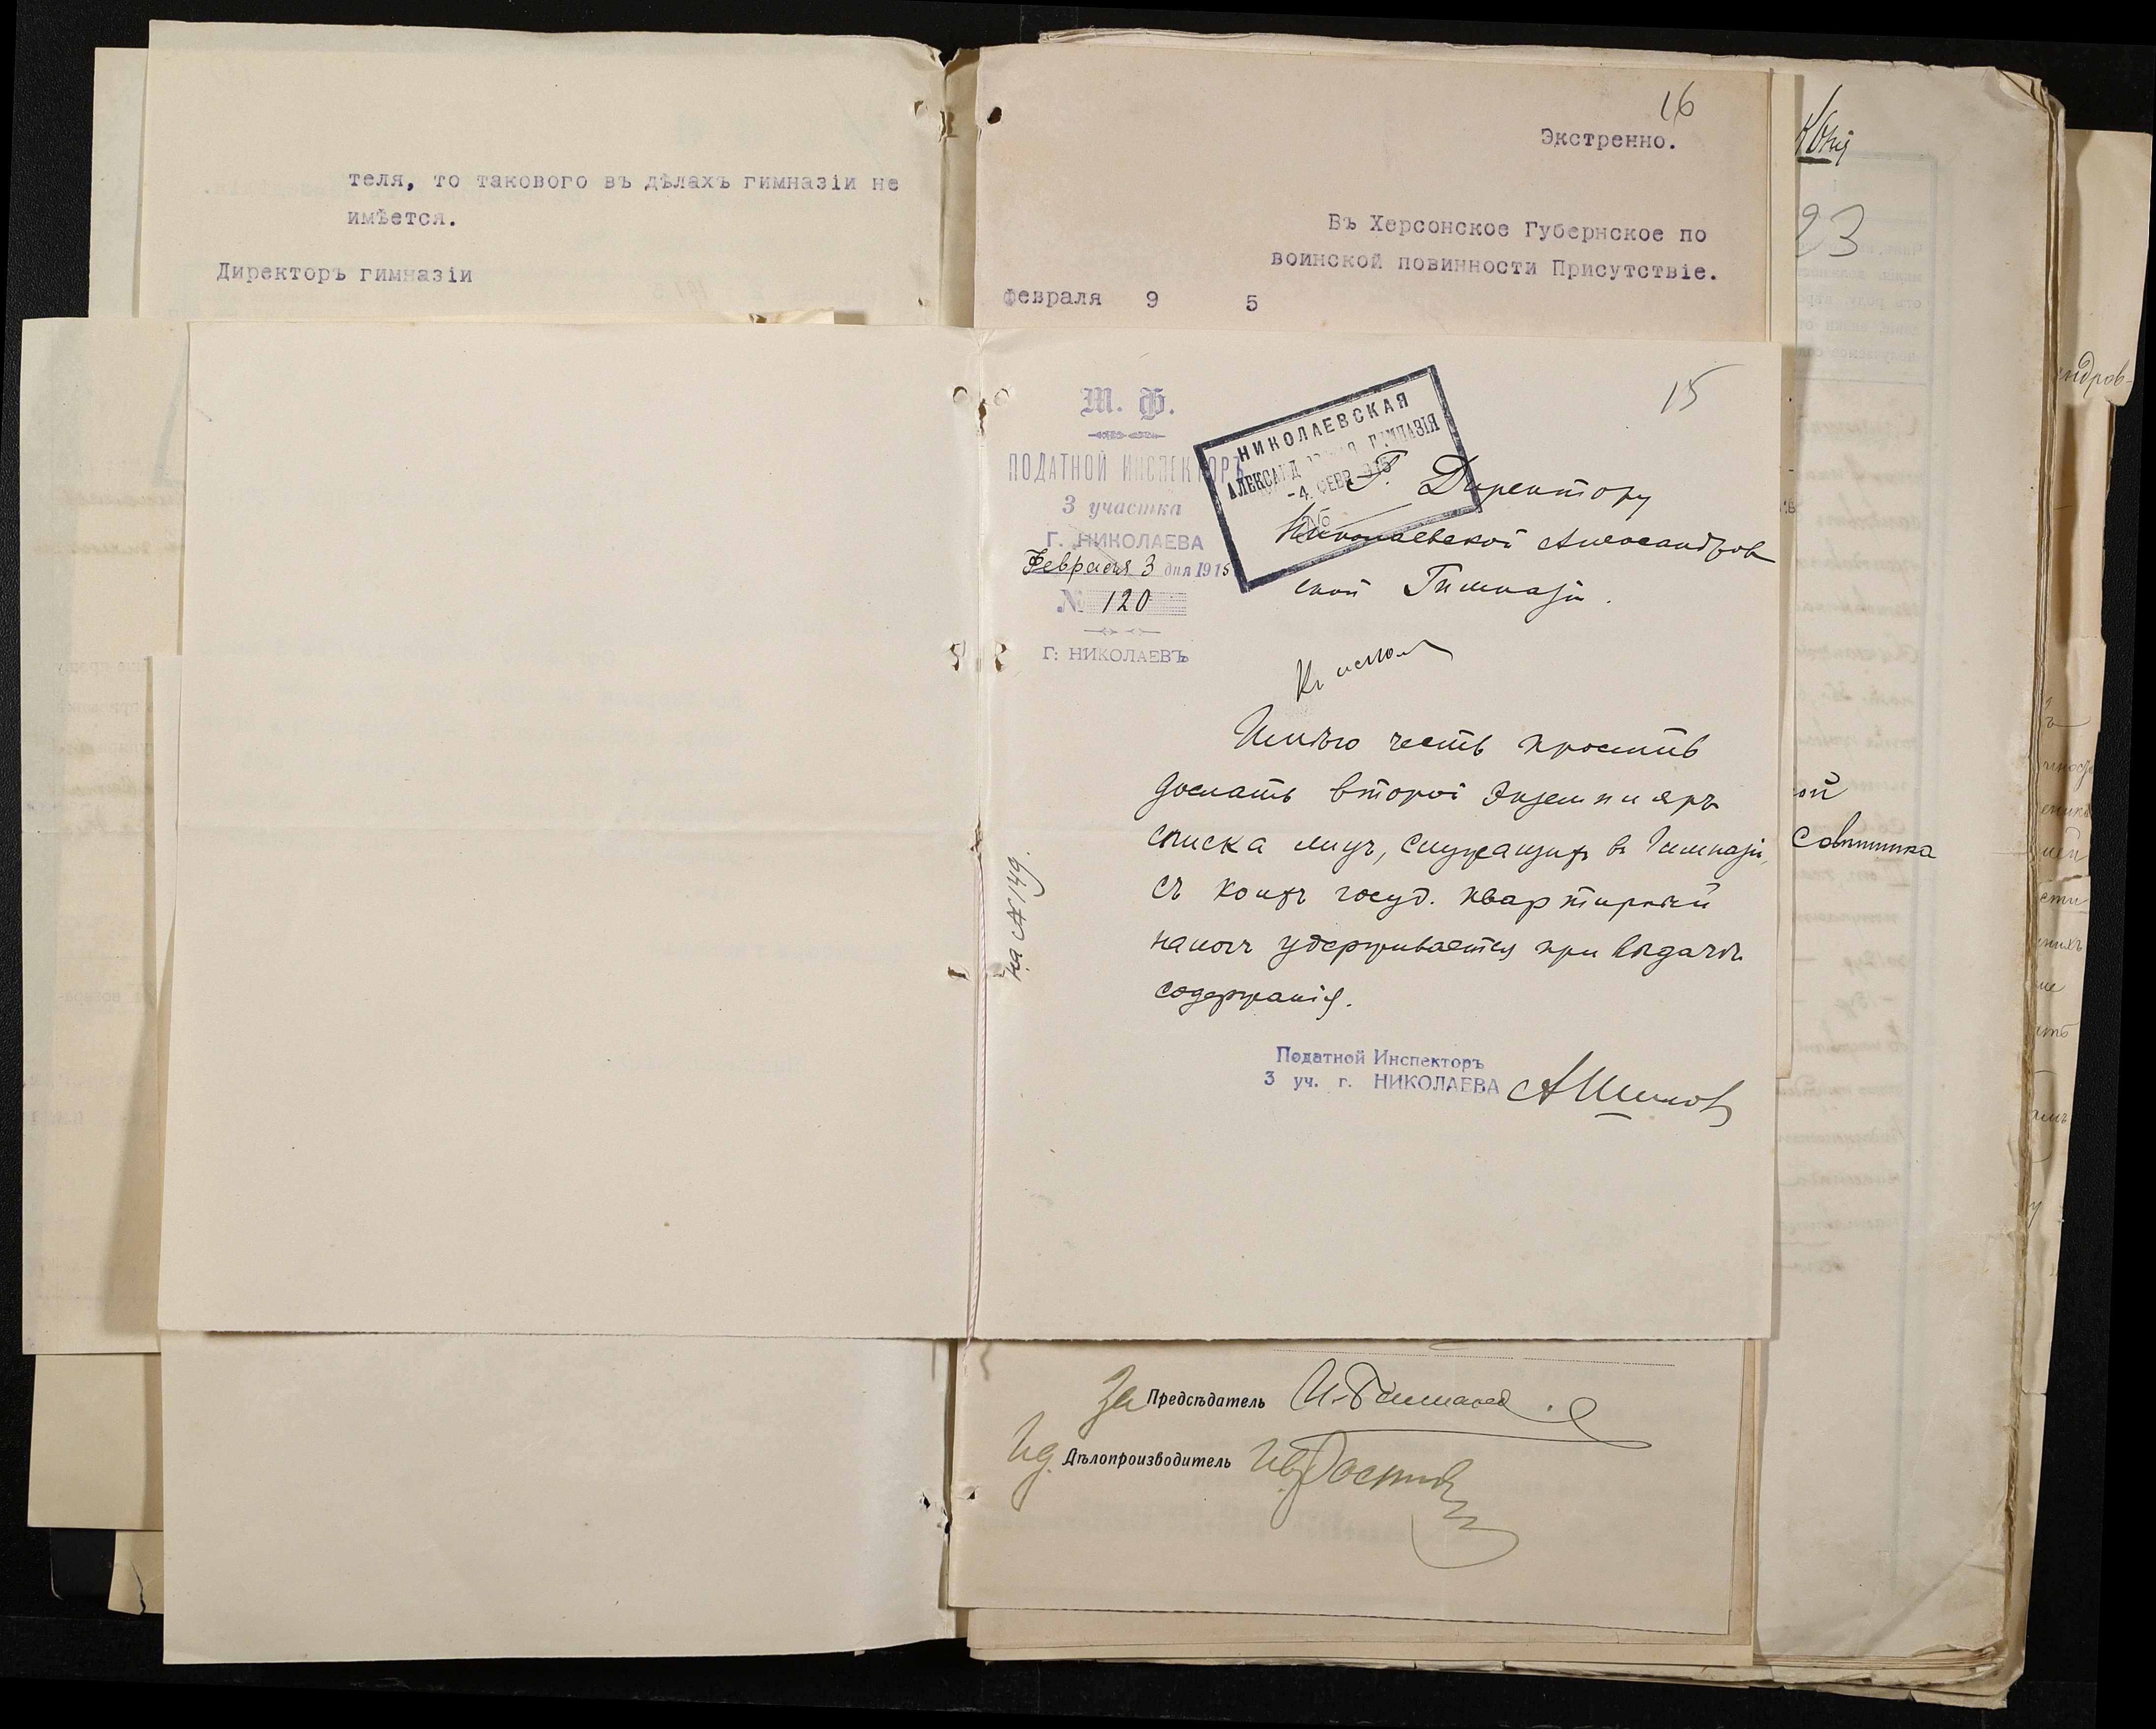 теля, то такового въ дѣлахъ гимназіи не
имѣется.
Директоръ гимназіи
16
Экстренно.
Въ Херсонское Губернское по
воинской повинности Присутствіе.
Февраля 9 5
Копія
23
15
М. Ф.
ПОДАТНОЙ ИНСПЕКТОРЪ
3 участка
Г. НИКОЛАЕВА
Февраля 3 дня 1915
№ 120
Г. НИКОЛАЕВЪ
НИКОЛАЕВСКАЯ
АЛЕКСАНДРОВСКАЯ ГИМНАЗІЯ
-4. ФЕВР. 1915
№
Г. Директору
Николаевской Александров
ской Гимназіи.
Имѣю честь просить
дослать второй экземпляръ
списка лицъ, служащихъ въ Гимназіи,
съ коихъ госуд. квартирный
налогъ удерживается при выдачѣ
содержанія.
на № 149.
Податной Инспекторъ
3 уч. г. НИКОЛАЕВА
За Предсѣдатель
Ид. Дѣлопроизводитель
ой
Совѣтника
ндров-